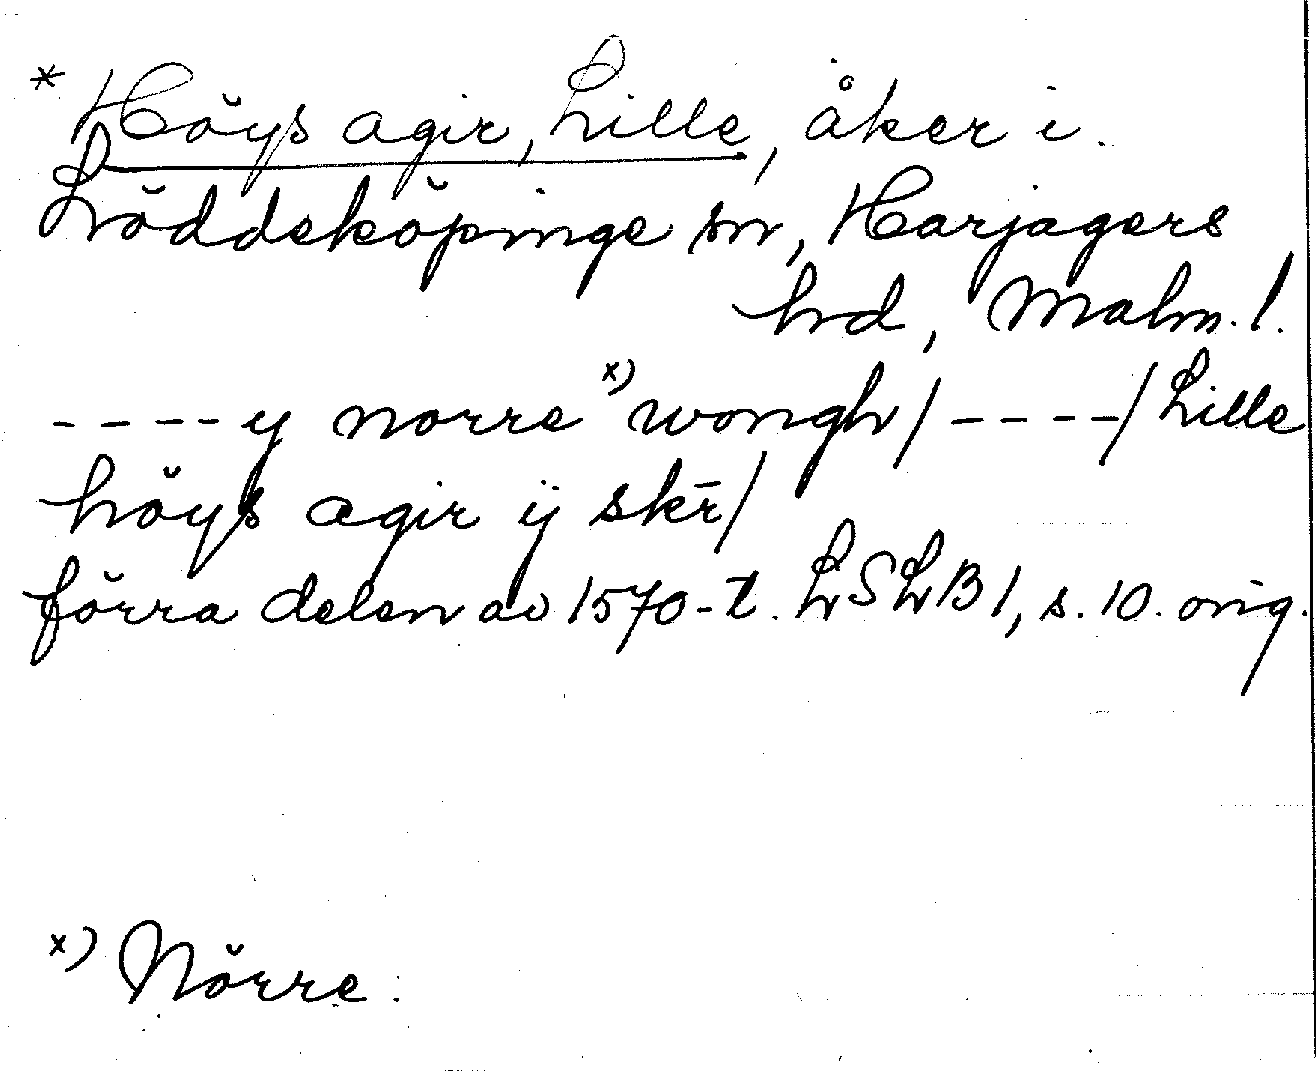 * Höys agir, Lille, åker i
Löddeköpinge sn, Harjagers
hrd, Malm. l.
----y norre x) wongh/ ----/ Lille
höys agir ij skr̄/
förra delen av 1570-t. LSLB 1, s. 10. orig.
x) Nörre.